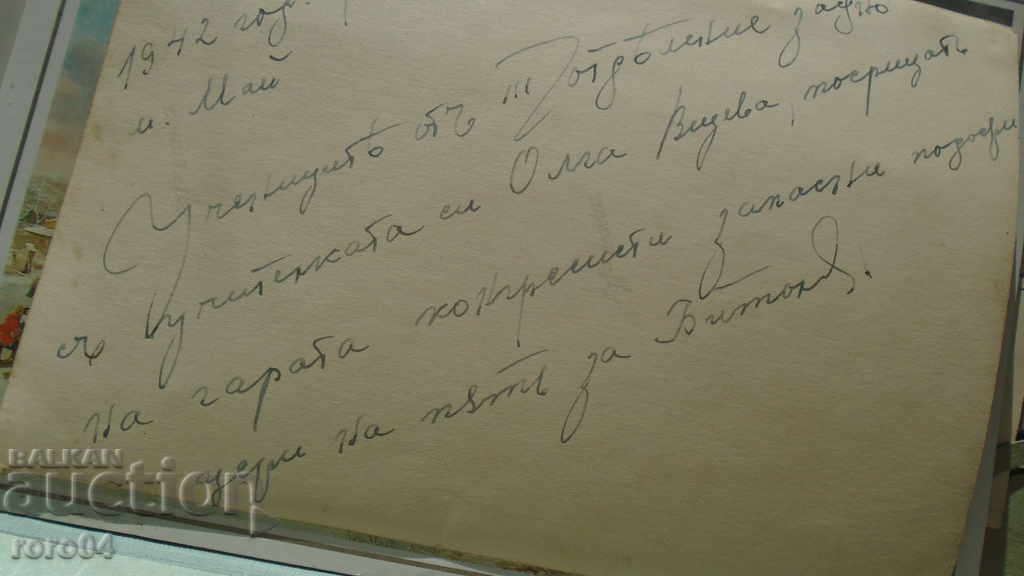 1942 год.
м. Май
Ученицитѣ отъ III отдѣление заедно
съ учителката си Олга Вицева, посрещатъ
на гарата конгресисти запасни подофи
цери на пѫть за Битоля.
BALKAN
auction
roro94